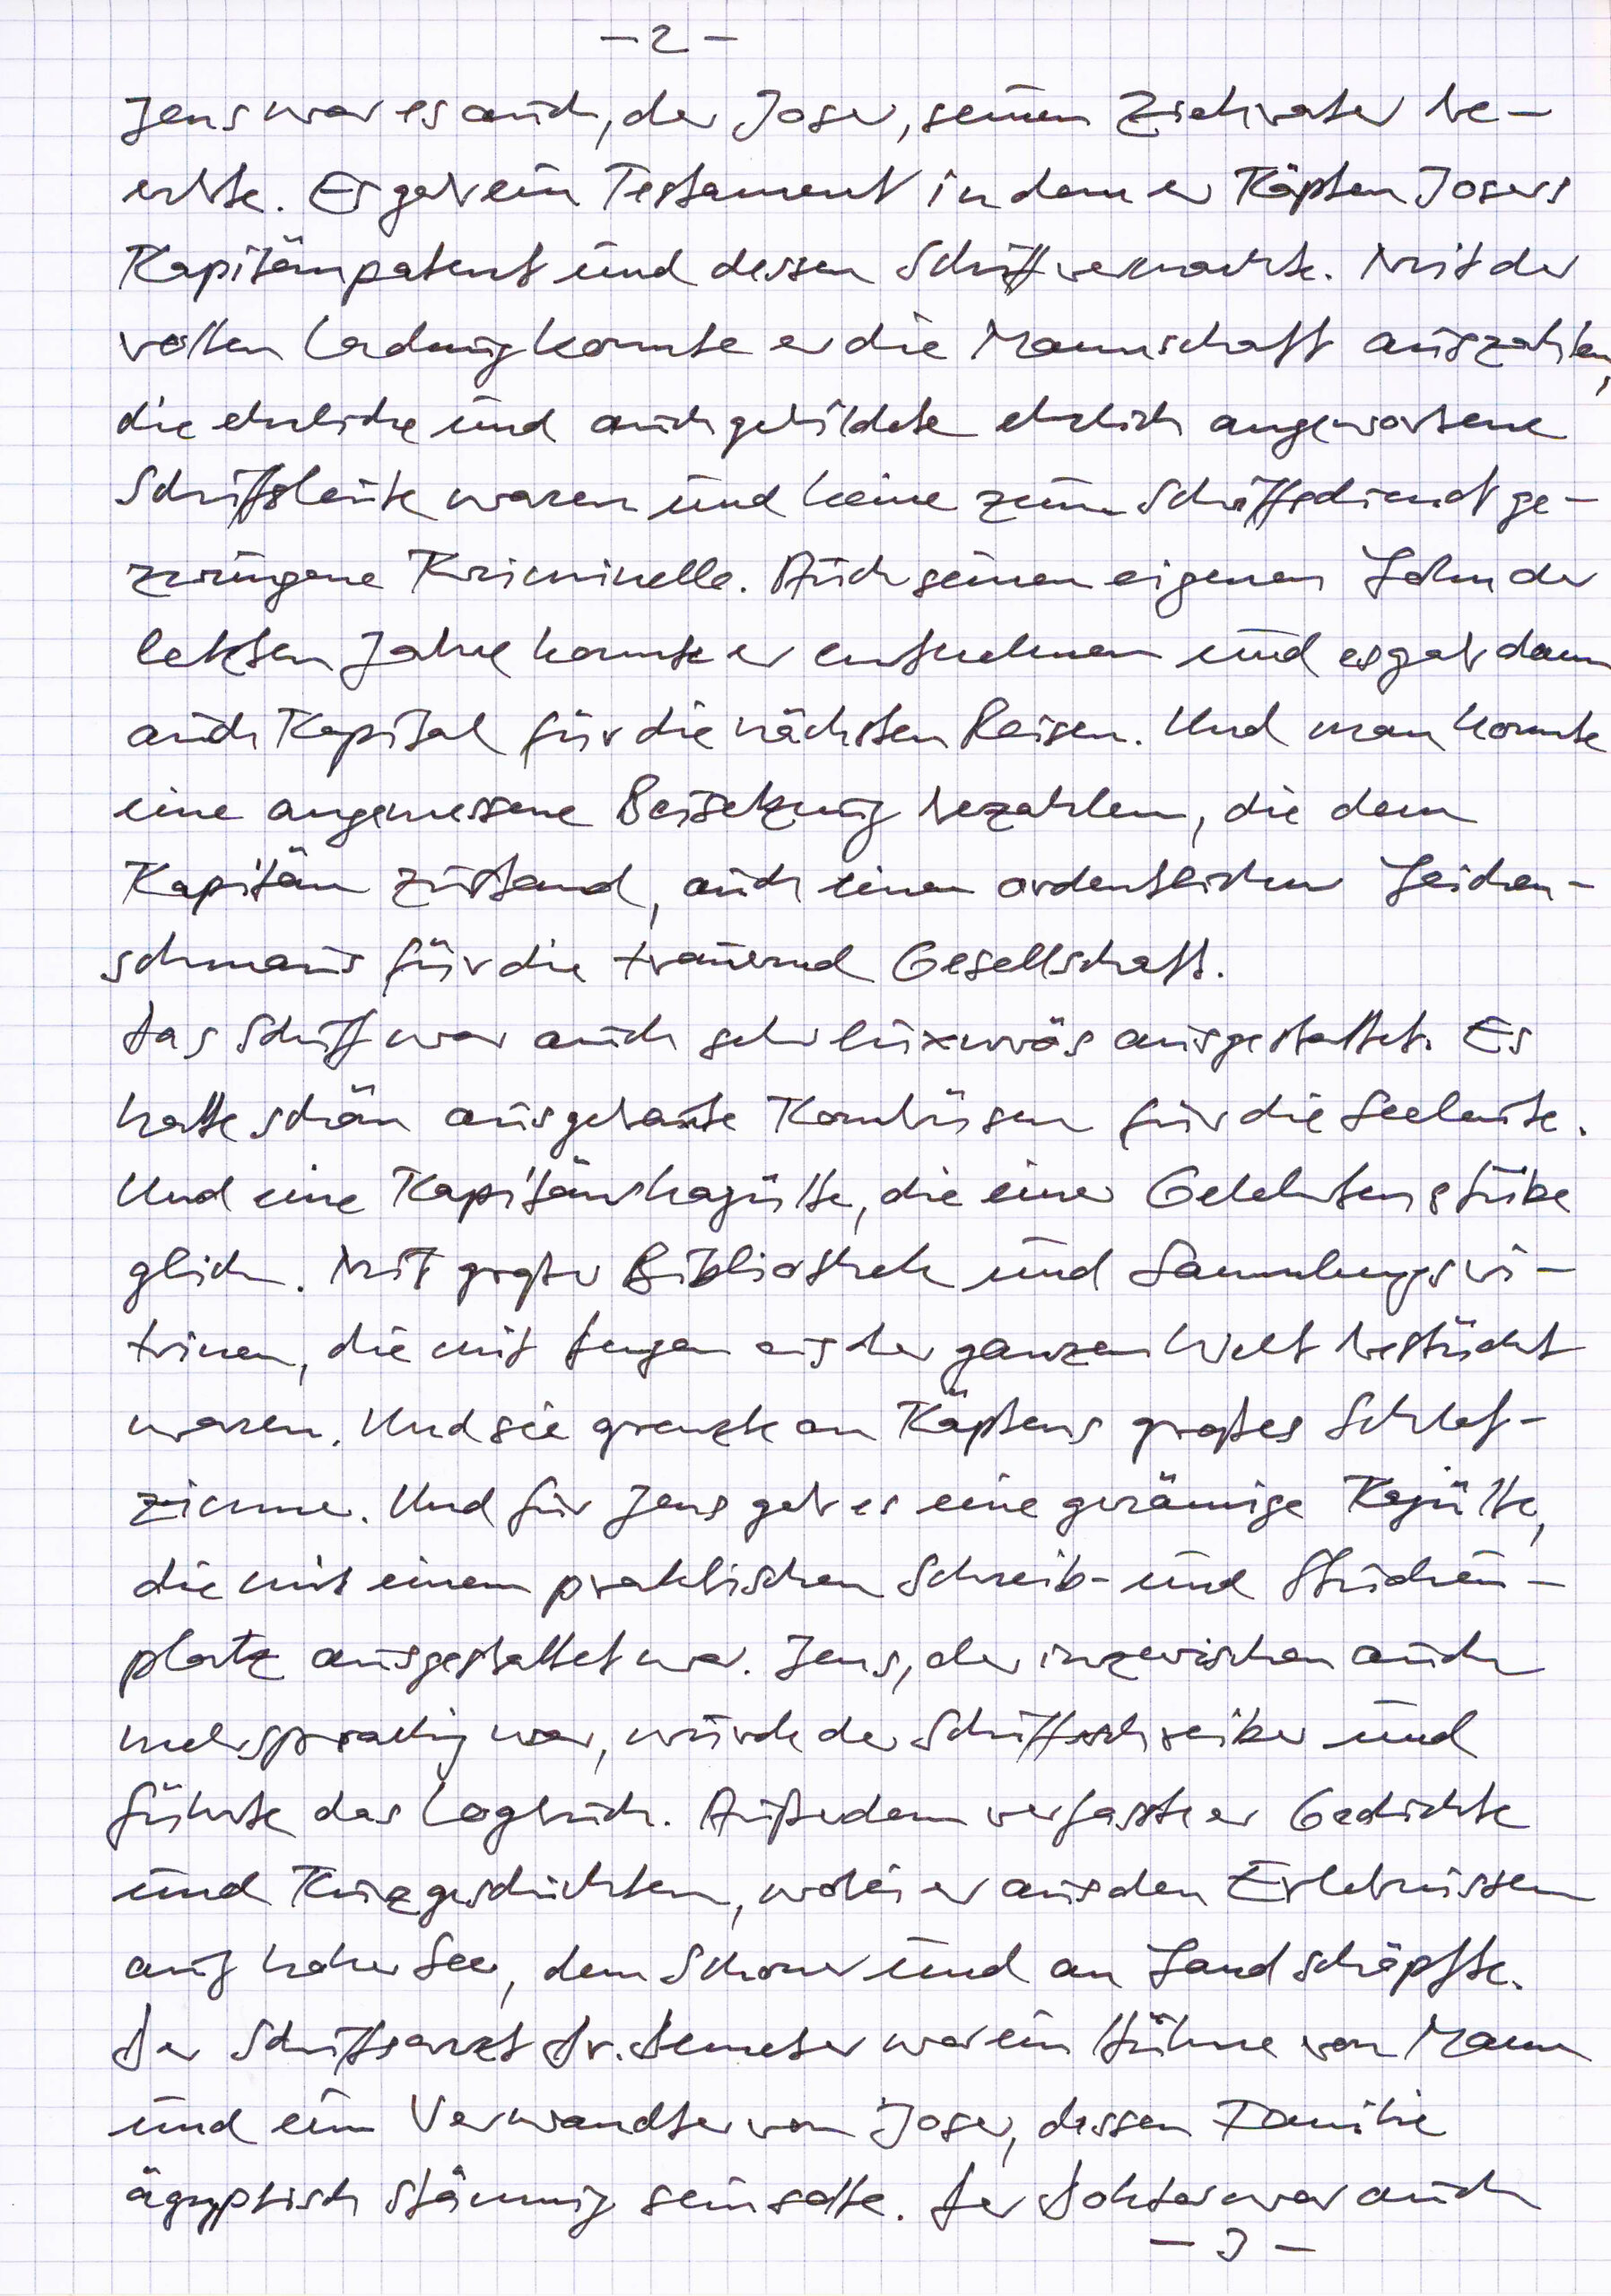 – 2 –
Jens war es auch, der Joser, seinen Ziehvater be-
erbte. Es gab ein Testament in dem er Käpten Josers
Kapitänpatent und dessen Schiff vermachte. Mit der
vollen Ladung konnte er die Mannschaft auszahlen,
die ehrliche und auch gebildete ehrlich angeworbene
Schiffsleute waren und keine zum Schiffsdienst ge-
zwungene Kriminelle. Auch seinen eigenen Lohn der
letzten Jahre konnte er entnehmen und es gab dann
auch Kapital für die nächsten Reisen. Und man konnte
eine angemessene Beisetzung bezahlen, die dem
Kapitän zustand, auch einen ordentlichen Leichen-
schmaus für die trauernd Gesellschaft.
Das Schiff war auch sehr luxuriös ausgestattet. Es
hatte schön ausgebaute Kombüsen für die Seeleute.
Und eine Kapitänskajütte, die einer Gelehrtenstube
glich. Mit großer Bibliothek und Sammlungsvi-
trinen, die mit Dingen aus der ganzen Welt bestückt
waren. Und sie grenzte an Käptens großes Schlaf-
zimmer. Und für Jens gab es eine geräumige Kajütte,
die mit einem praktischen Schreib- und Studien-
platz ausgestattet war. Jens, der inzwischen auch
mehrsprachig war, wurde der Schiffsschreiber und
führte das Logbuch. Außerdem verfasste er Gedichte
und Kurzgeschichten, wobei er aus den Erlebnissen
auf hoher See, dem Schoner und an Land schöpfte.
Der Schiffsarzt Dr. Demeter war ein Hühne von Mann
und ein Verwandter von Joser, dessen Familie
ägyptisch stämmig sein sollte. Der Doktor war auch
– 3 –